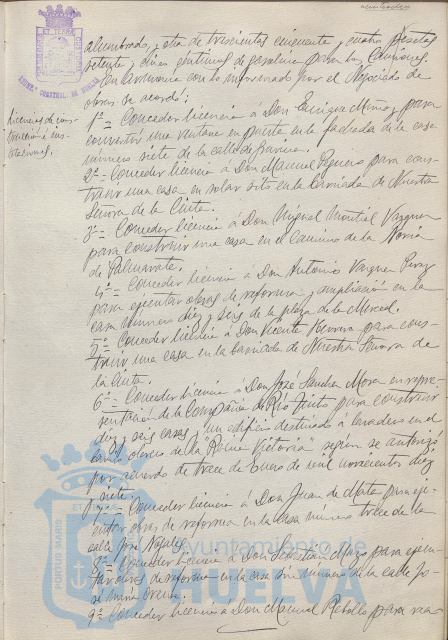 alumbrado, y otra de trescientas cincuenta y cuatro pesetas
setenta y cinco centimos de gasolina para los Camiones.
En armonia con lo informado por el Negociado de
obras se acordó:
Licencias de cons-
trucción e ins-
talaciones.
1º = Conceder licencia á Don Enrique Muñoz para
convertir una ventana en puerta en la fachada de la casa
número siete de la calle de
2º = Conceder licencia á Don Manuel Seguero para cons-
truir una casa en solar sito en la barriada de Nuestra
Señora de la Cinta.
3º = Conceder licencia á Don Miguel Montiel Vazquez
para construir una casa en el camino de la Noria
de
4º = Conceder licencia á Don Antonio Vazquez Perez
para ejecutar obras de reforma y ampliación en la
casa número diez y seis de la plaza de la Merced.
5º = Conceder licencia á Don Vicente Ferrera para cons-
truir una casa en la barriada de Nuestra Señora de
la Cinta.
6º = Conceder licencia á Don José Sanchez Mora en repre-
sentación de la Compañia de Rio Tinto para construir
diez y seis casas y un edificio destinado á lavadero en el
barrio obrero de la "Reina Victoria" según se autorizó
por acuerdo de trece de Enero de mil novecientos diez
y siete.
7º = Conceder licencia á Don Juan de Mata para eje-
cutar obras de reforma en la casa número trece de la
calle José Nogales.
8º = Conceder licencia á Don Sebastián Mazo para ejecu-
tar obras de reforma en la casa sin número de la calle Jo-
sé
9º = Conceder licencia á Don Manuel Rebollo para rea-
Ayuntamiento de
HUELVA
PORTUS MARIS